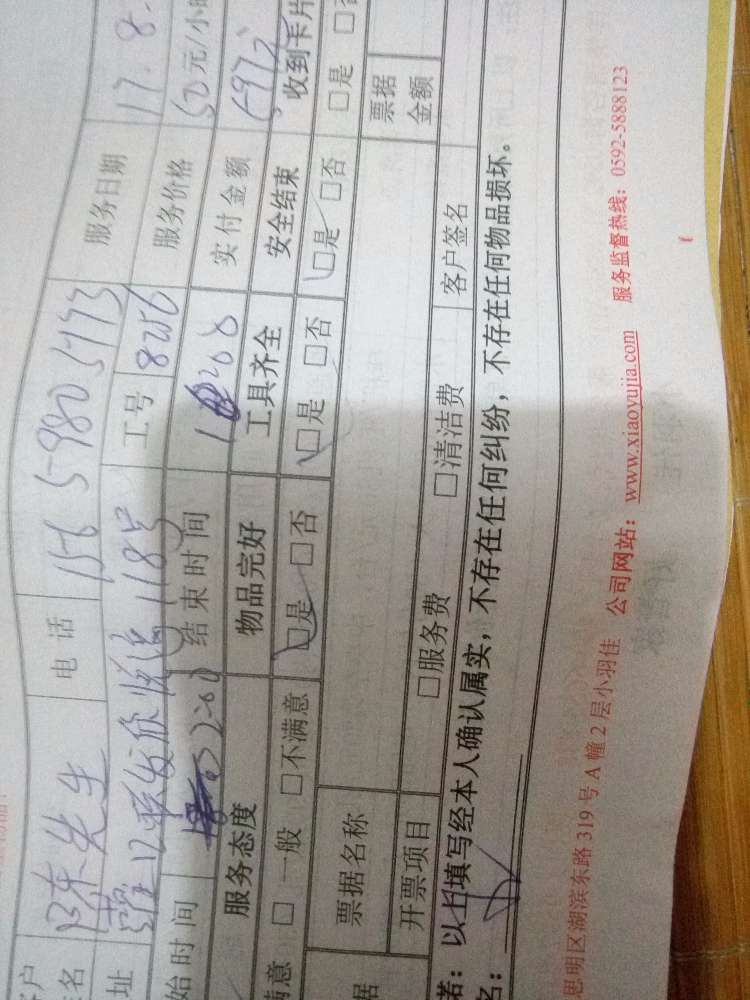 客户 陈先生 电话 156 5980 5973 服务日期 17.8.
址 工号 8256 服务价格 50元/小时
始时间 结束时间 实付金额
服务态度 物品完好 工具齐全 安全结束 收到卡片
满意 □一般 □不满意 □是 □否 □是 □否 □是 □否 □是 □否
据 票据名称 票据金额
开票项目 □服务费 □清洁费 客户签名
诺：以上填写经本人确认属实，不存在任何纠纷，不存在任何物品损坏。
名：
思明区湖滨东路319号A幢2层小羽佳 公司网站：www.xiaoyujia.com 服务监督热线：0592-5888123